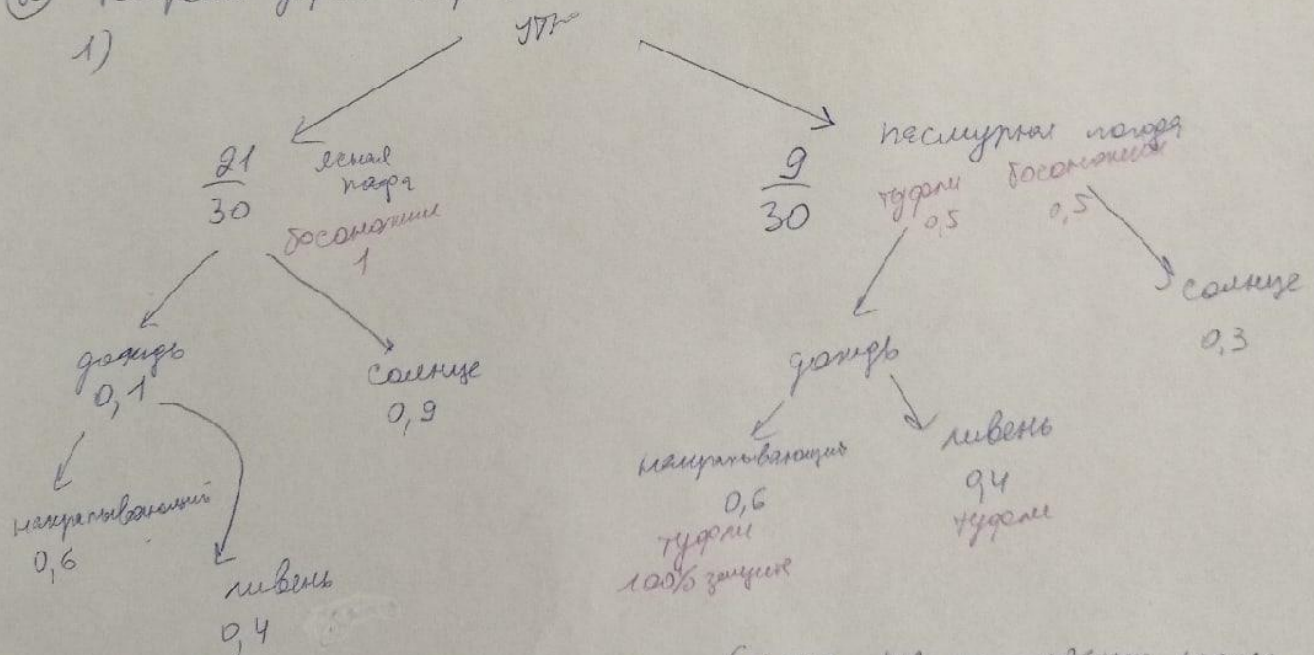 1)
утро
21/30 ясная
погода
босоножки
1
9/30 пасмурная погода
туфли босоножки
0,5 0,5
дождь
0,1
солнце
0,9
накрапывающий
0,6
ливень
0,4
дождь
солнце
0,3
накрапывающий
0,6
туфли
100% защита
ливень
0,4
туфли